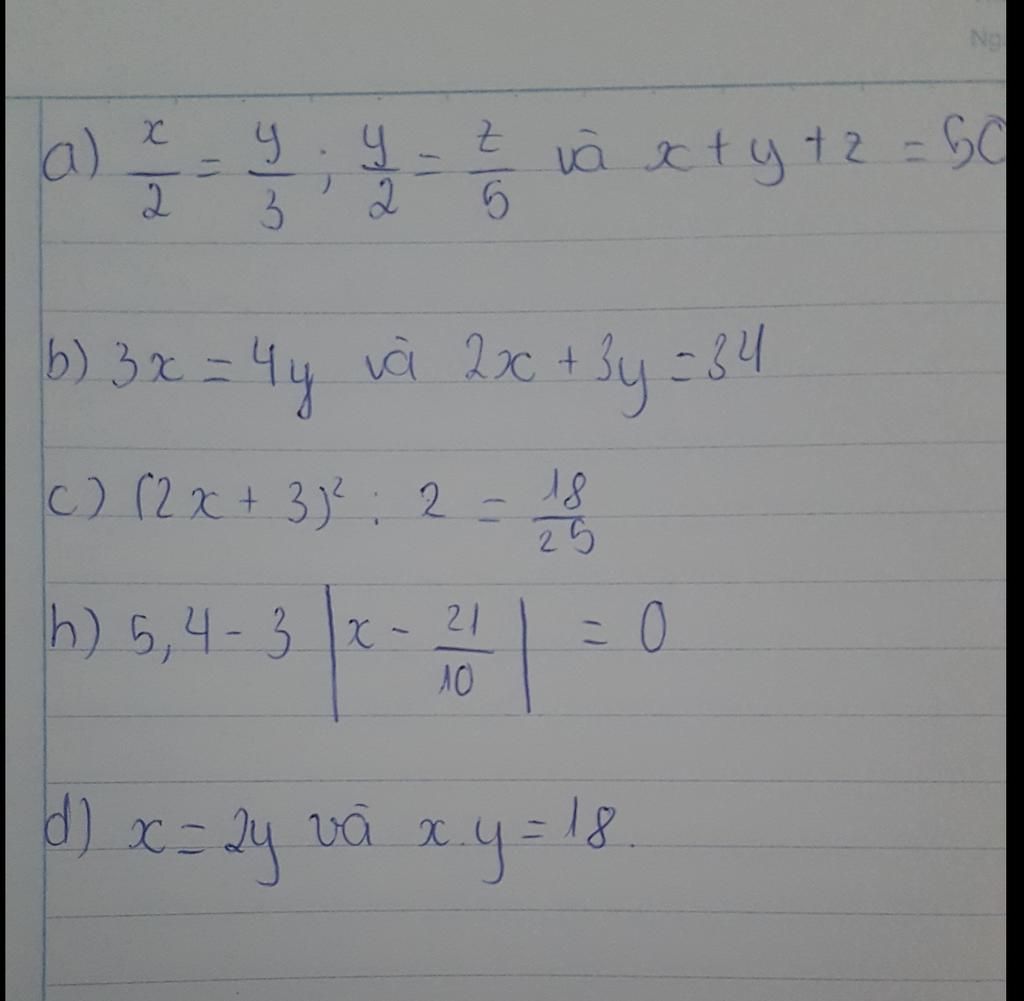 Ng
a) x/2 = y/3 ; y/2 = z/5 và x + y + z = 50
b) 3x = 4y và 2x + 3y = 34
c) (2x + 3)² : 2 = 18/25
h) 5,4 - 3 |x - 21/10| = 0
d) x = 2y và x.y = 18.